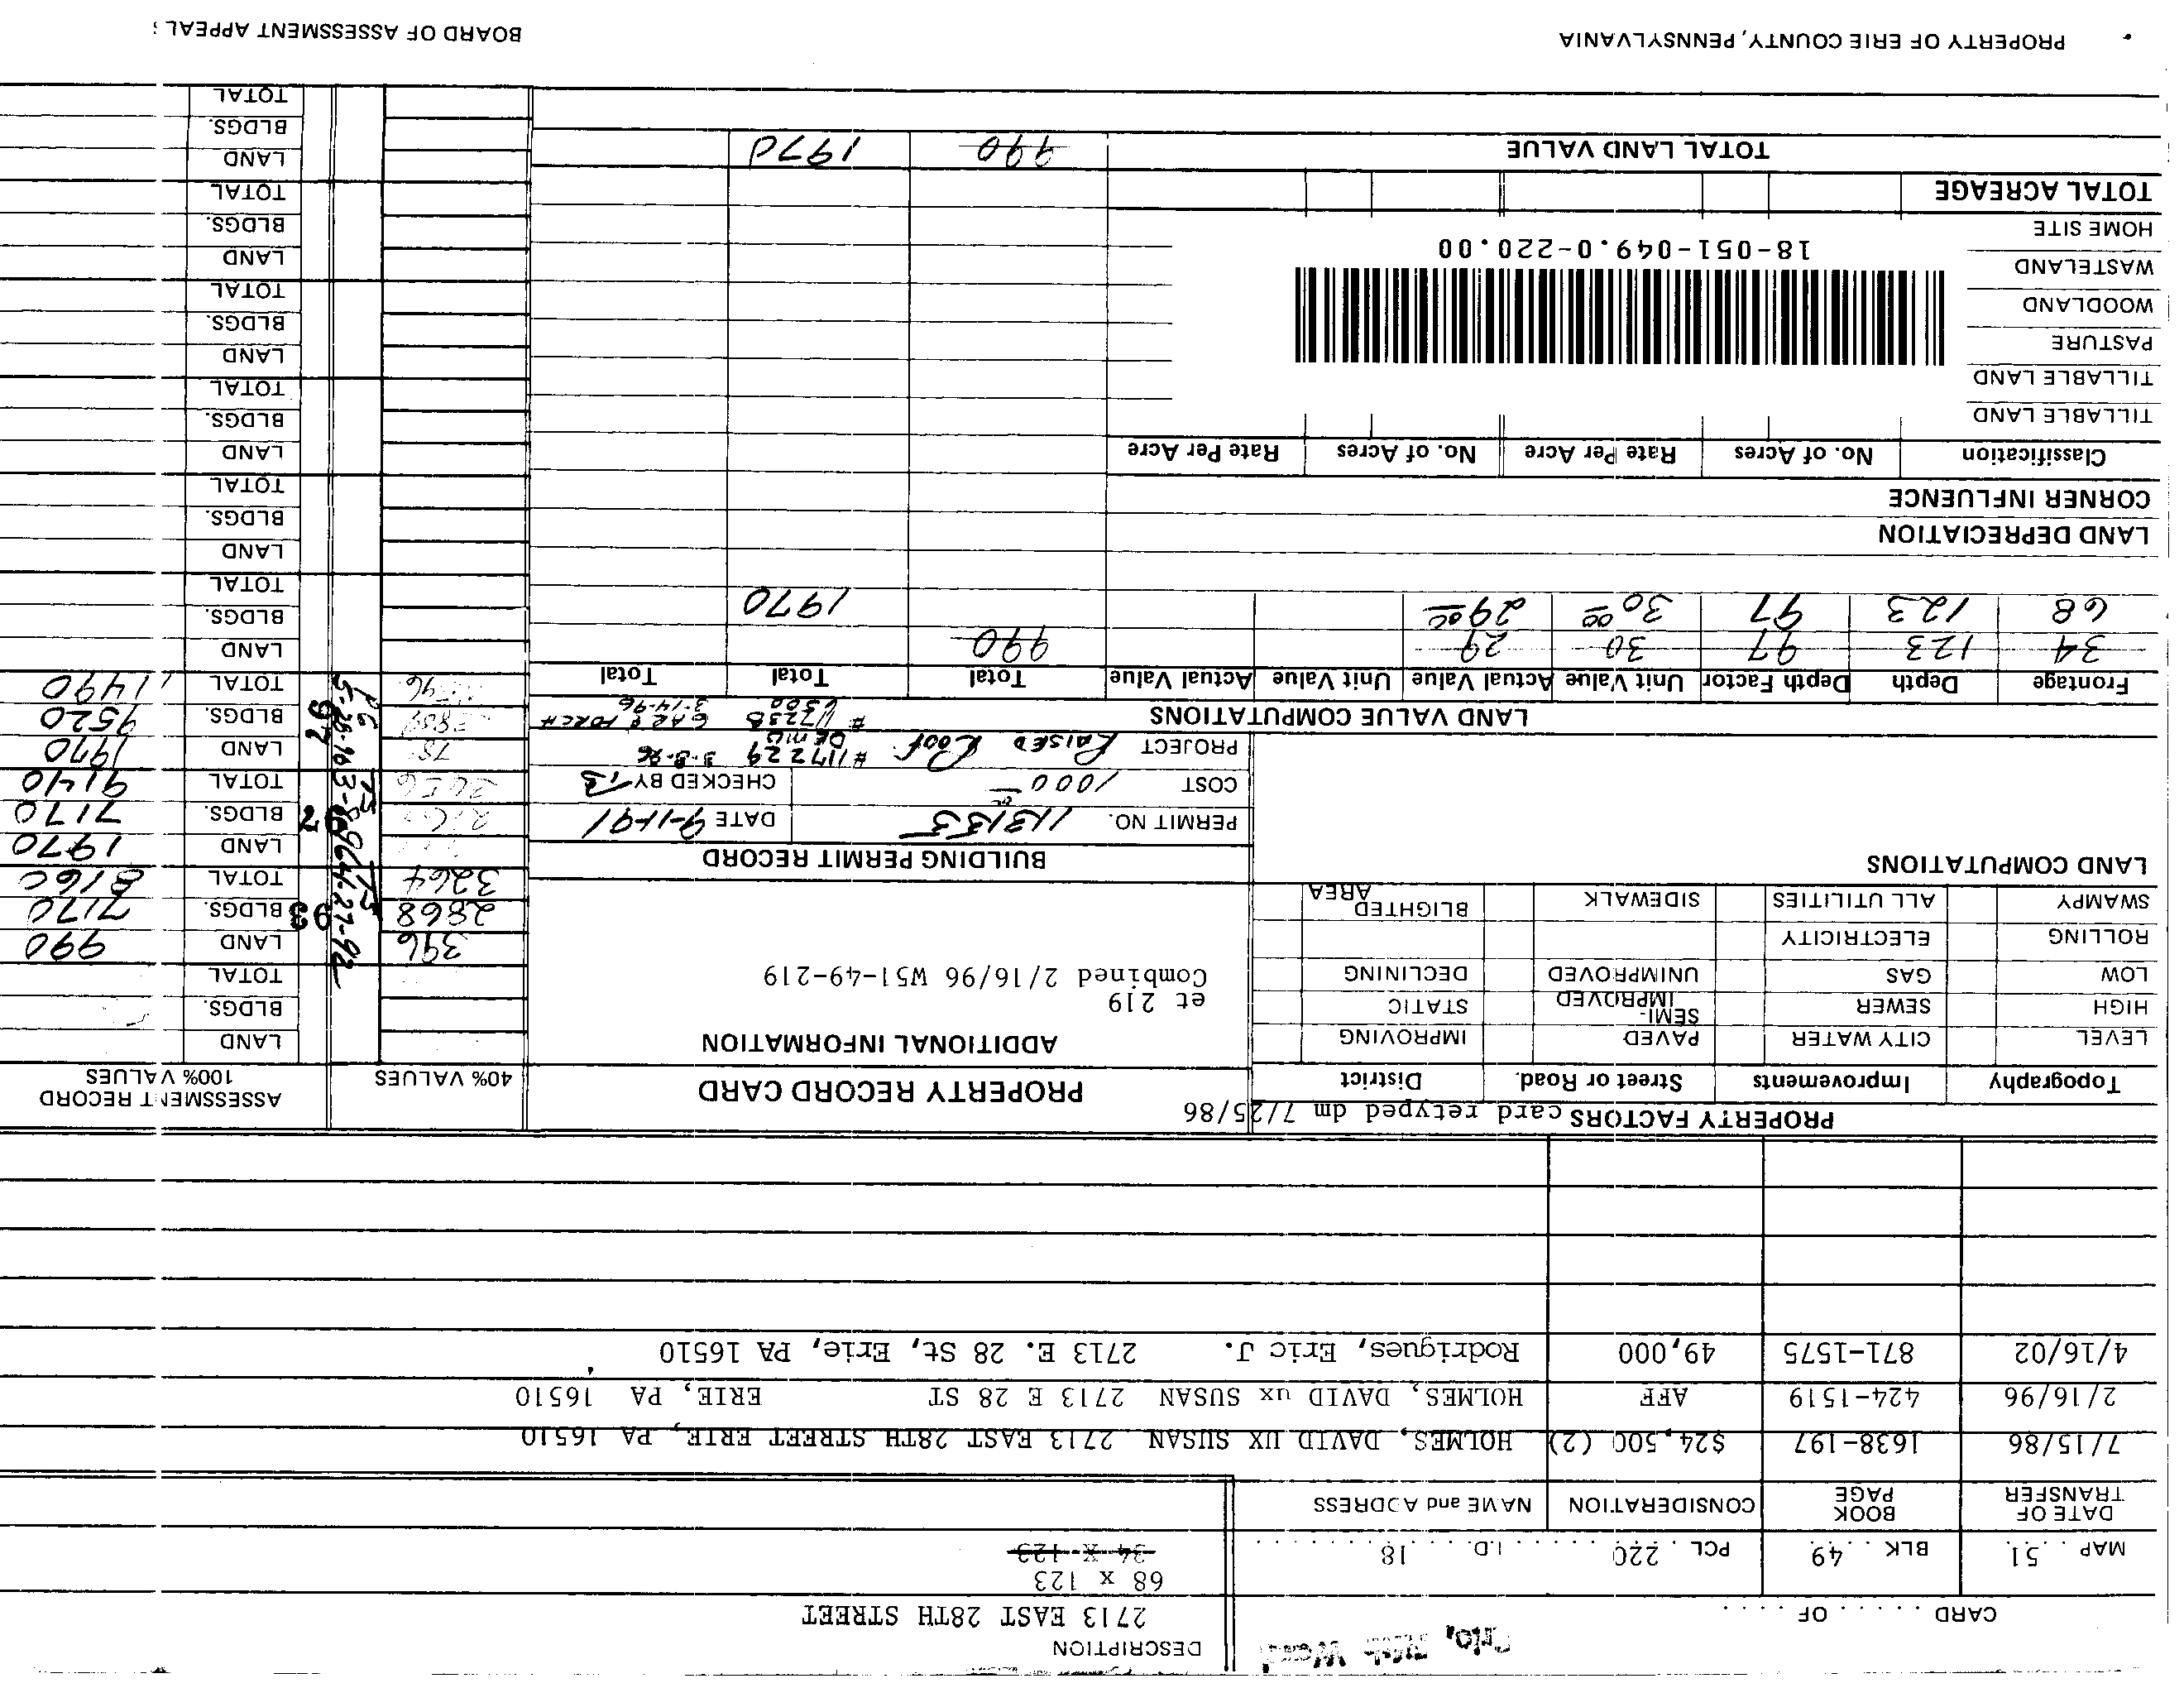 Erie, Ward
CARD . . . . . . OF . . . . .
DESCRIPTION
2713 EAST 28TH STREET
68 x 123
34 X 123
MAP . . 51. BLK . . 49 PCL . . 220 . . . . . . I.D. . . . . 18
DATE OF TRANSFER BOOK PAGE CONSIDERATION NAME and ADDRESS
7/15/86 1638-197 $24,500 (2) HOLMES, DAVID UX SUSAN 2713 EAST 28TH STREET ERIE, PA 16510
2/16/96 424-1519 AFF HOLMES, DAVID ux SUSAN 2713 E 28 ST ERIE, PA 16510
4/16/02 871-1575 49,000 Rodrigues, Eric J. 2713 E. 28 St, Erie, PA 16510
PROPERTY FACTORS card retyped dm 7/25/86
Topography Improvements Street or Road. District
LEVEL CITY WATER PAVED IMPROVING
HIGH SEWER SEMI-IMPROVED STATIC
LOW GAS UNIMPROVED DECLINING
ROLLING ELECTRICITY
SWAMPY ALL UTILITIES SIDEWALK BLIGHTED AREA
LAND COMPUTATIONS
PROPERTY RECORD CARD
ADDITIONAL INFORMATION
et 219
Combined 2/16/96 W51-49-219
BUILDING PERMIT RECORD
PERMIT NO. 113135 DATE 9-11-91
COST 1000 CHECKED BY TB
PROJECT RAISED ROOF. #117229 3-8-96
DEMO
#117238 GAR & PORCH
6500 3-14-96
40% VALUES
ASSESSMENT RECORD
100% VALUES
LAND
BLDGS.
TOTAL
396 LAND 990
2868 93 BLDGS. 7170
3264 TOTAL 8160
LAND 1970
BLDGS. 7170
3656 TOTAL 9140
LAND 1970
97 BLDGS. 9520
TOTAL 11490
LAND
BLDGS.
TOTAL
LAND
BLDGS.
TOTAL
LAND
BLDGS.
TOTAL
LAND
BLDGS.
TOTAL
LAND
BLDGS.
TOTAL
LAND
BLDGS.
TOTAL
LAND VALUE COMPUTATIONS
Frontage Depth Depth Factor Unit Value Actual Value Unit Value Actual Value Total Total Total
34 123 97 30 29 990
68 123 97 30 00 29 00 1970
LAND DEPRECIATION
CORNER INFLUENCE
Classification No. of Acres Rate Per Acre No. of Acres Rate Per Acre
TILLABLE LAND
TILLABLE LAND
PASTURE
WOODLAND
WASTELAND
HOME SITE
18-051-049.0-220.00
TOTAL ACREAGE
TOTAL LAND VALUE 990 1970
PROPERTY OF ERIE COUNTY, PENNSYLVANIA
BOARD OF ASSESSMENT APPEAL